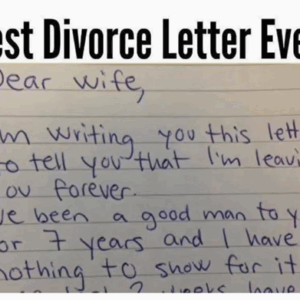 est Divorce Letter Eve
Dear Wife,
m writing you this lett
to tell you that I'm leavi
ou forever.
ve been a good man to y
or 7 years and I have
nothing to show for it
2 weeks have